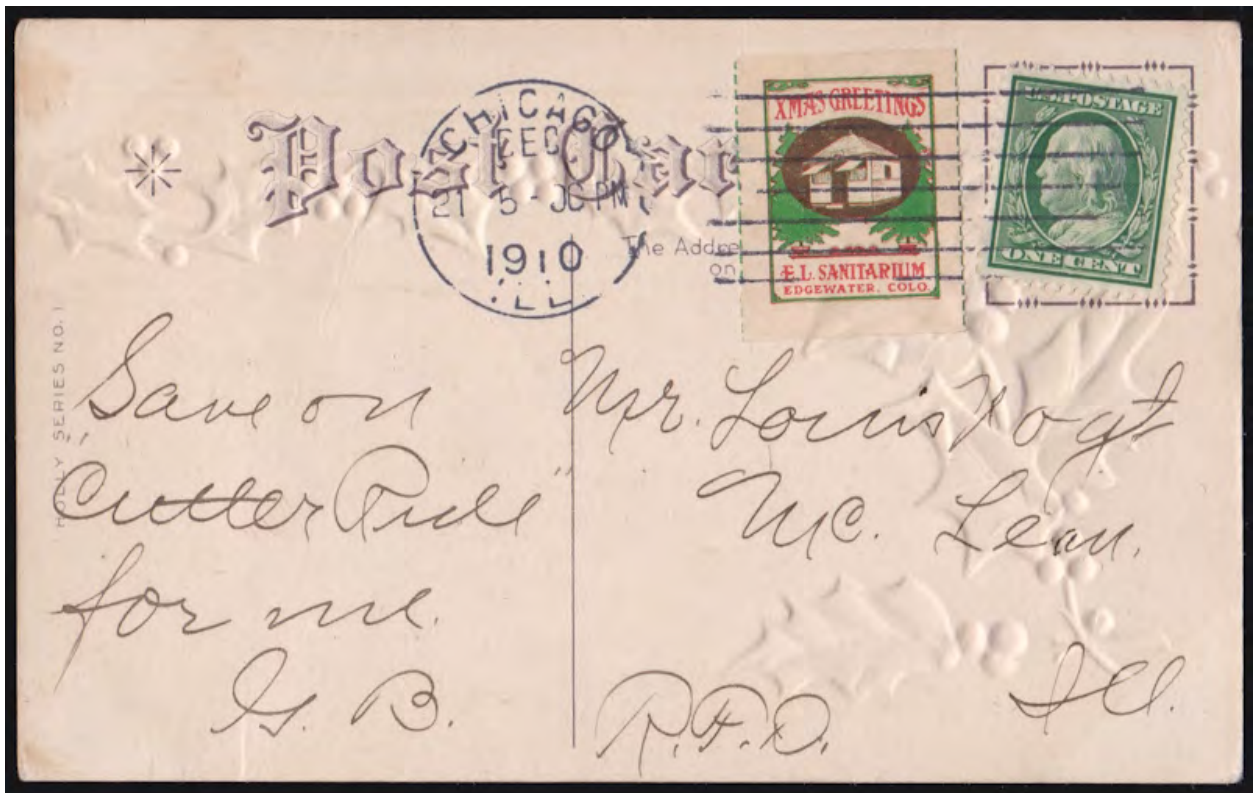 Post Car
CHICAGO
DEC
21 5-30 PM
1910
ILL.
The Addre
on
XMAS GREETINGS
E.L. SANITARIUM
EDGEWATER, COLO.
U.S. POSTAGE
ONE CENT
HOLLY SERIES NO. 1
Save on
"Cutter Ride"
for me.
G. B.
Mr. Louis Vogt
Mc. Lean.
Ill.
R.F.D.